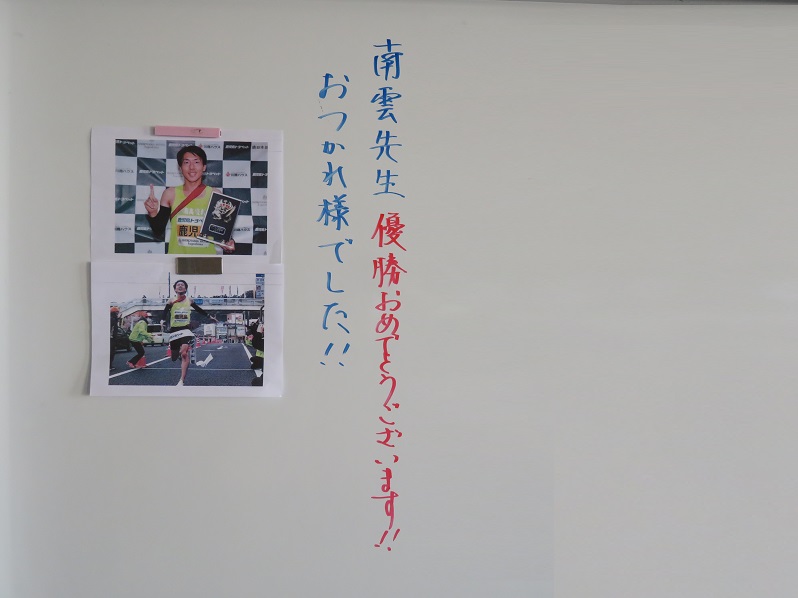 南雲先生 優勝おめでとうございます!!
おつかれ様でした!!
鹿児